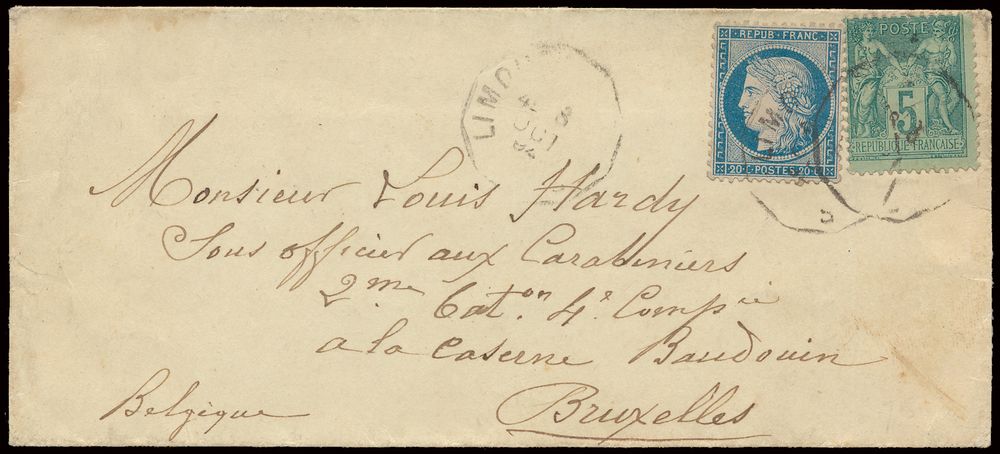 REPUB · FRANC ·
20 C · POSTES · 20 C
POSTE
5
RÉPUBLIQUE FRANÇAISE
OCT
Monsieur Louis Hardy
Sous officier aux Carabiniers
2.me Bat.on 4.e Comp.ie
a la Caserne Baudouin
Belgique Bruxelles